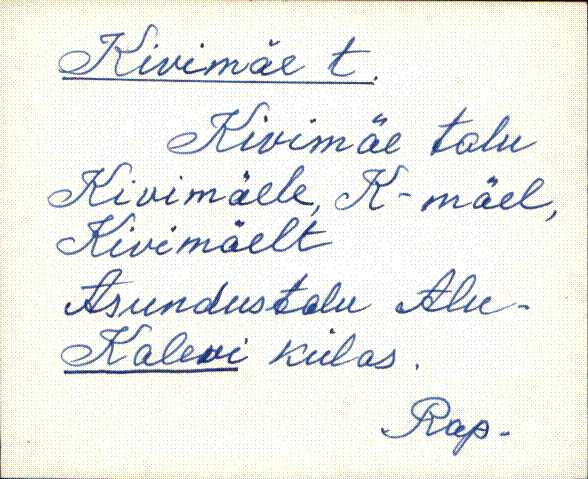 Kivimäe t.
Kivimäe talu
Kivimäele, K-mäel,
Kivimäelt
Asundustalu Alu-
Kalevi külas.
Rap.